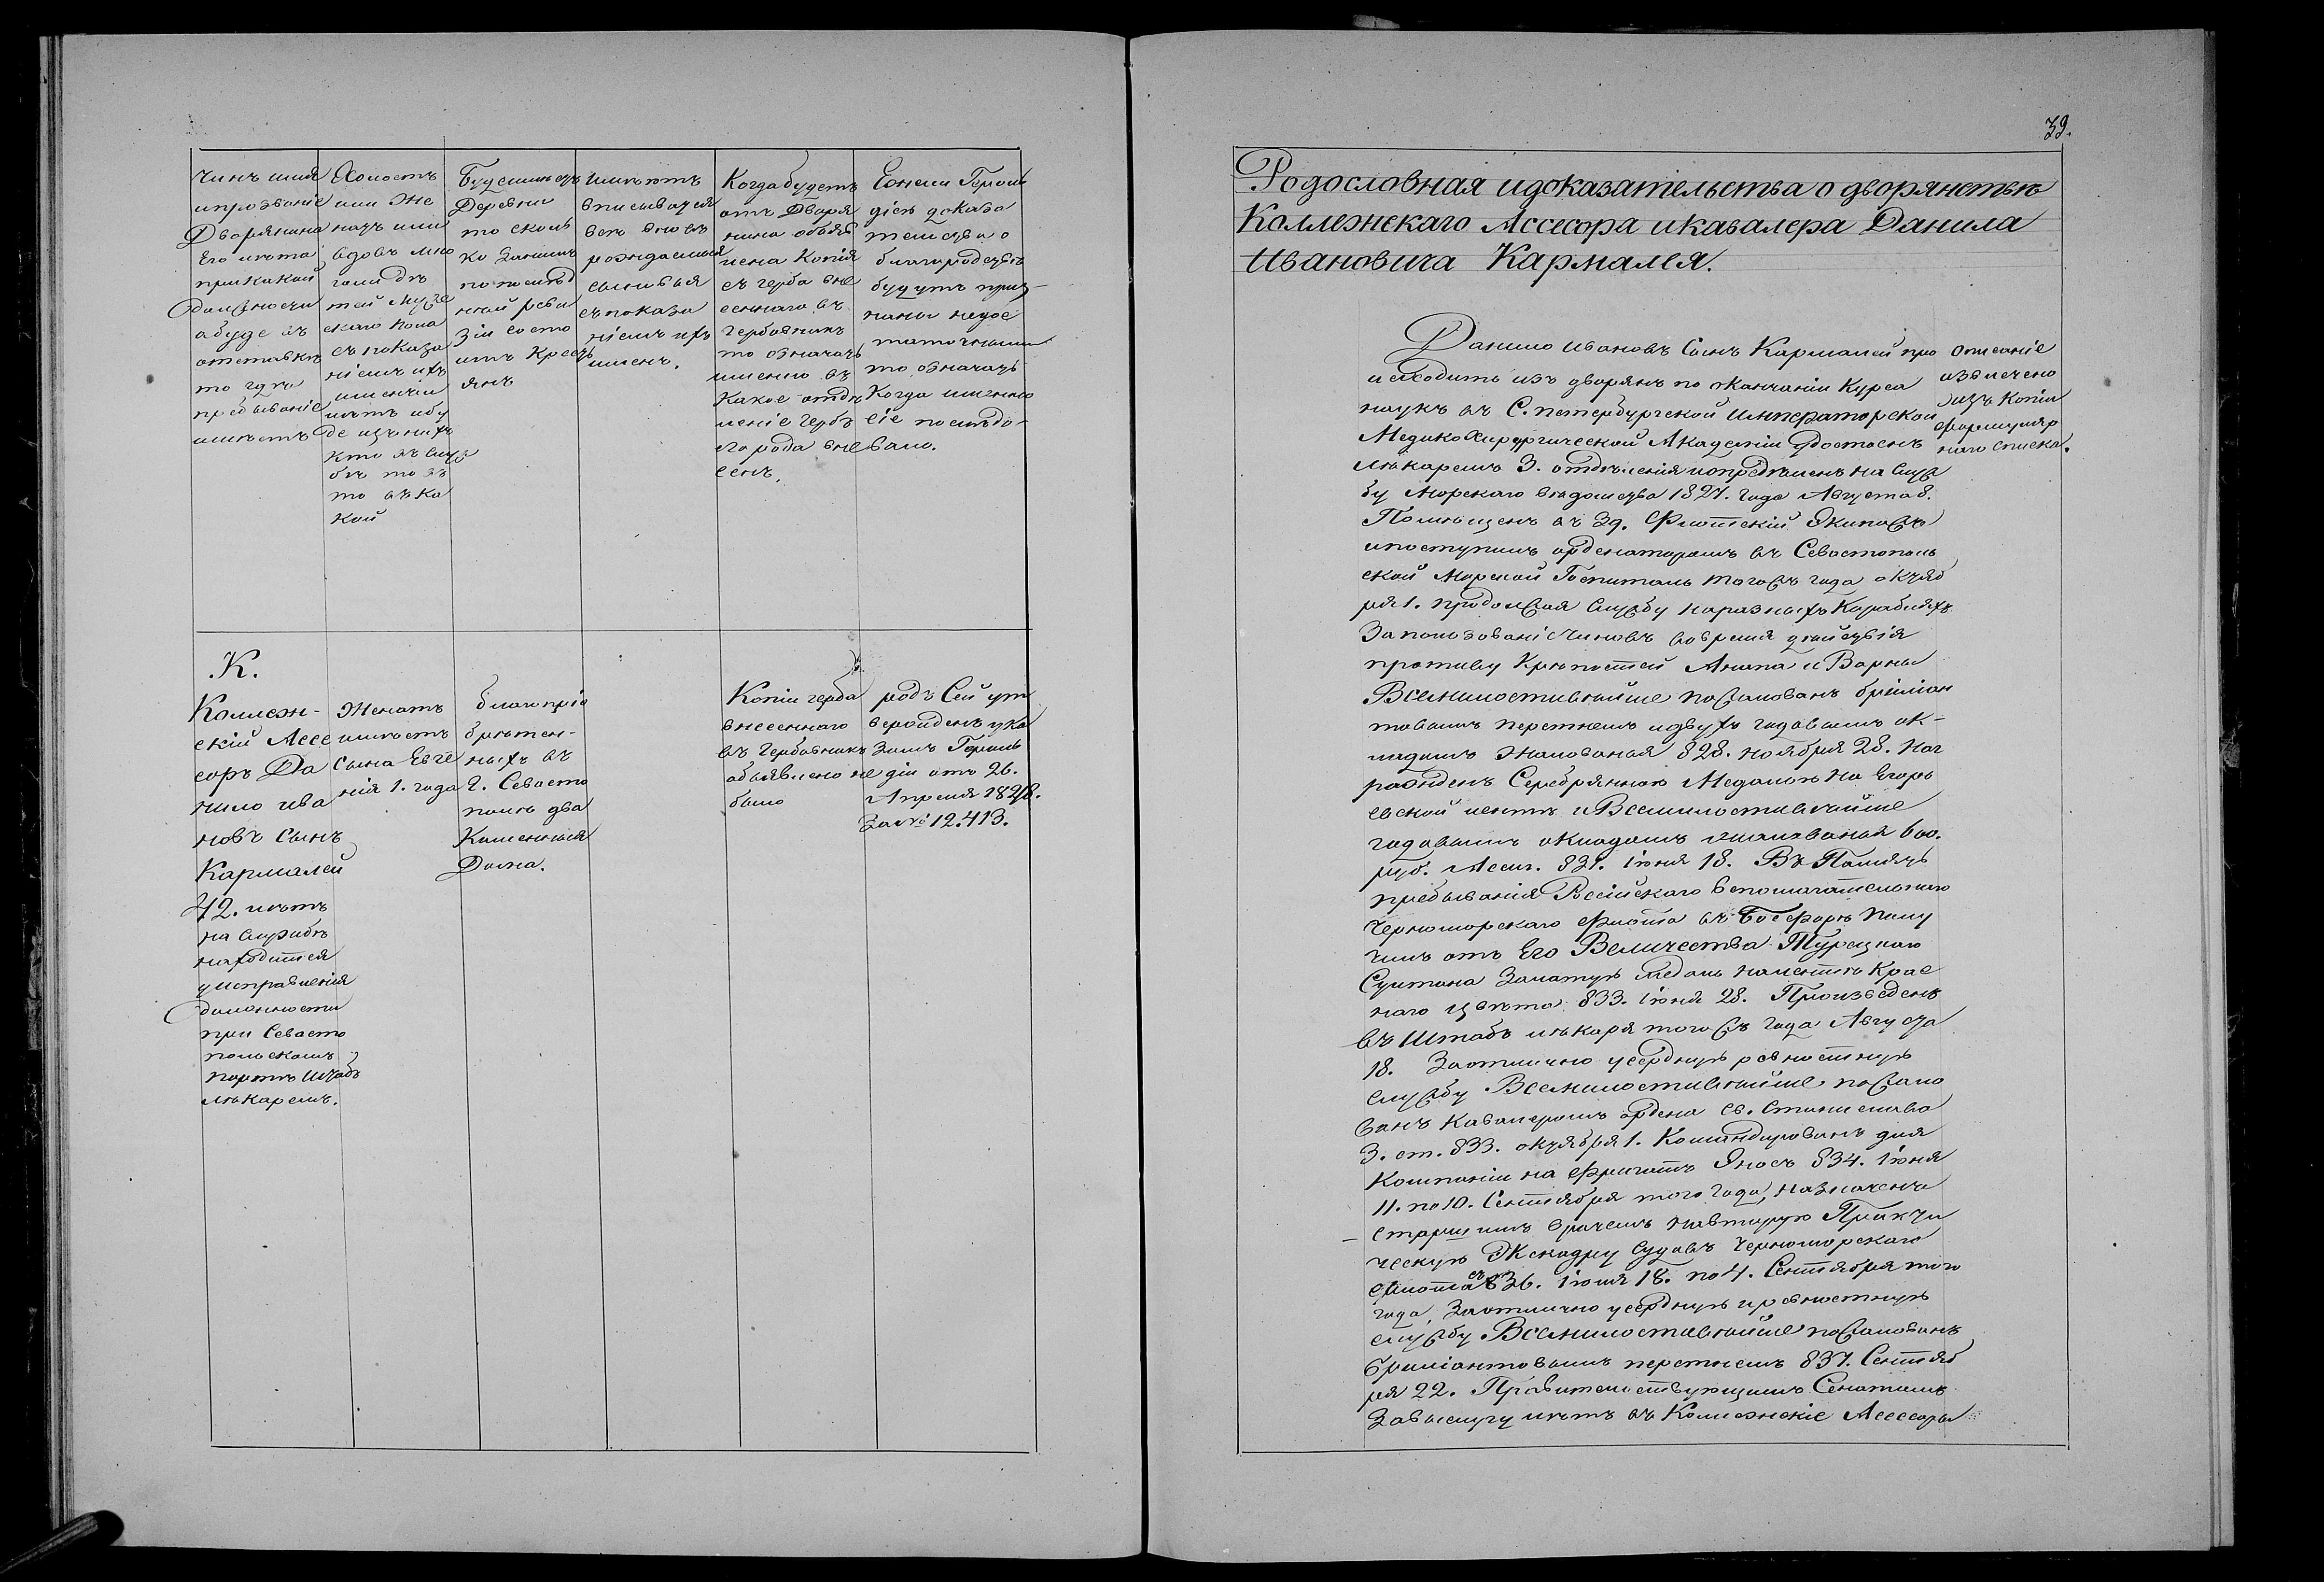 Чинъ имя
ипрозваніе
Дворянина
Его лѣта
прикакой
Должности
абуде въ
отставкѣ
то гдѣ
пребываніе
имѣетъ
Холостъ
или Же
натъ или
вдовъ мно
голи дѣ
тей Муже
скаго пола
съ показа
ніемъ ихъ
имянъ и
лѣтъ ибу
де изъ нихъ
кто въ служ
бѣ то въ
то въ ка
кой
Будеимѣетъ
Деревни
то сколь
ко Занимъ
попослѣд
ней реви
зіи состо
итъ Кресть
янъ
Имѣютъ
вписываться
всѣ вновь
рождаемыя
сыновья
съ показа
ніемъ ихъ
именъ.
Когда будетъ
отъ Дворя
нина объяв
лена Копія
съ герба вне
сеннаго въ
Гербовникъ
то означать
именно въ
Какое отдѣ
леніе Гербъ
его рода вне
сенъ.
Еонели Героль
діею доказа
тельства о
благородствѣ
будутъ приз-
наны недос
таточными
то означать
Когда именно
сіе послѣдо-
вало.
.К.
Коллеж-
скій Ассе
соръ Да
нило ива
новъ Сынъ
Кармалей
42. лѣтъ
на службѣ
находится
у исправленія
должности
при Севасто
польскомъ
портѣ Штабъ
лѣкаремъ.
Женатъ
имѣетъ
Сына Евге
нія 1. года
благопріо
брѣтен-
ныхъ въ
Г. Севасто
полѣ два
Каменныя
Дома.
Копіи герба
внесеннаго
въ Гербовникъ
объявлено не
было
родъ Сей ут
вержденъ ука
зомъ Героль
діи отъ 26.
Апреля 1848.
За № 12.413.
39.
Родословная идоказательства о дворянствѣ
Коллежскаго Ассесора икавалера Данила
Ивановича Кармалея.
Данило Ивановъ Сынъ Кармалей про
исходитъ изъ дворянъ по окончаніи Курса
наукъ въ С. петербургской Императорской
Медико Хирургической Академіи удостоенъ
лѣкаремъ 3. отдѣленія иопредѣленъ на служ
бу Морскаго вѣдомства 1827. года Августа 8.
Помѣщенъ въ 39. Флотскій Экипажъ
ипоступилъ орденаторомъ въ Севастополь
ской Морской Госпиталь тогожъ года октяб
ря 1. продолжая службу наразныхъ Корабляхъ
За пользованіе Чиновъ вовремя дѣйствія
противу Крѣпостей Анапа и Варны
Всемилостивѣйше пожалованъ бриліан
товымъ перстнемъ идвухъ годовымъ ок-
ладомъ жалованья 828. ноября 28. наг
ражденъ Серебрянною Медалью на Егорь
евской лентѣ иВсемилостивѣйше
годовымъ окладомъ жалованья 600.
руб. Ассиг. 831. Іюня 18. Въ Память
пребыванія Россійскаго вспомагательнаго
Черноморскаго Флота въ Босфорѣ полу
чилъ отъ Его Величества Турецкаго
Султана Залатую медаль налентѣ Крас
наго цвѣта 833. Іюня 28. Произведенъ
въ Штабъ лѣкаря тогожъ года Августа
18. Заотлично усердную ревностную
службу Всемилостивѣйше пожало
ванъ Кавалеромъ ордена Св. Станислава
3. ст. 833. октября 1. Командированъ для
Компаніи на Фрегатъ Эносъ 834. Іюня
11. по 10. Сентября того года, назначенъ
старшимъ врачемъ навторую Практи
ческую Эскадру Судовъ Черноморскаго
Флота съ 836. Іюля 18. по 4. Сентября того
года, Заотлично усердную иревностную
службу Всемилостивѣйше пожалованъ
бриліантовымъ перстнемъ 837. Сентяб
ря 22. Правительствующимъ Сенатомъ
Завыслугу лѣтъ въ Колежскіе Ассесоры
Описаніе
извлечено
изъ Копіи
формуляр
наго списка.